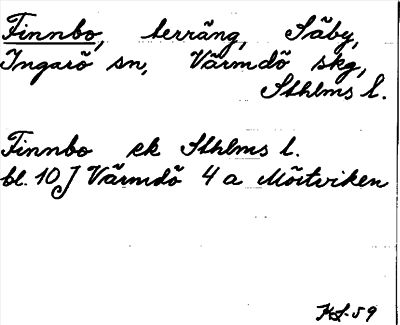 Finnbo, terräng, Säby,
Ingarö sn, Värmdö skg,
Sthlms l.
Finnbo ek Sthlms l.
bl. 10 J Värmdö 4 a Mörtviken
KS-59